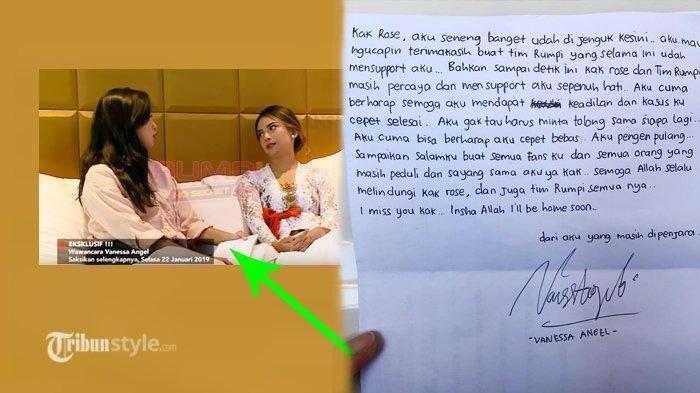 RUMPI
NO SECRET
EKSKLUSIF !!!
Wawancara Vanessa Angel
Saksikan selengkapnya, Selasa 22 Januari 2019
Tribunstyle.com
Kak Rose, aku seneng banget udah di jenguk kesini.. aku mau
ngucapin terimakasih buat tim Rumpi yang selama ini udah
mensupport aku... Bahkan sampai detik ini kak rose dan Tim Rumpi
masih percaya dan mensupport aku sepenuh hati.. Aku cuma
berharap semoga aku mendapat keadilan dan kasus ku
cepet selesai.. Aku gak tau harus minta tolong sama siapa lagi..
Aku cuma bisa berharap aku cepet bebas.. Aku pengen pulang..
Sampaikan salamku buat semua fans ku dan semua orang yang
masih peduli dan sayang sama aku ya kak.. semoga Allah selalu
melindungi kak rose, dan juga tim Rumpi semua nya..
I miss you kak.. Insha Allah I'll be home soon..
dari aku yang masih dipenjara..
-VANESSA ANGEL-